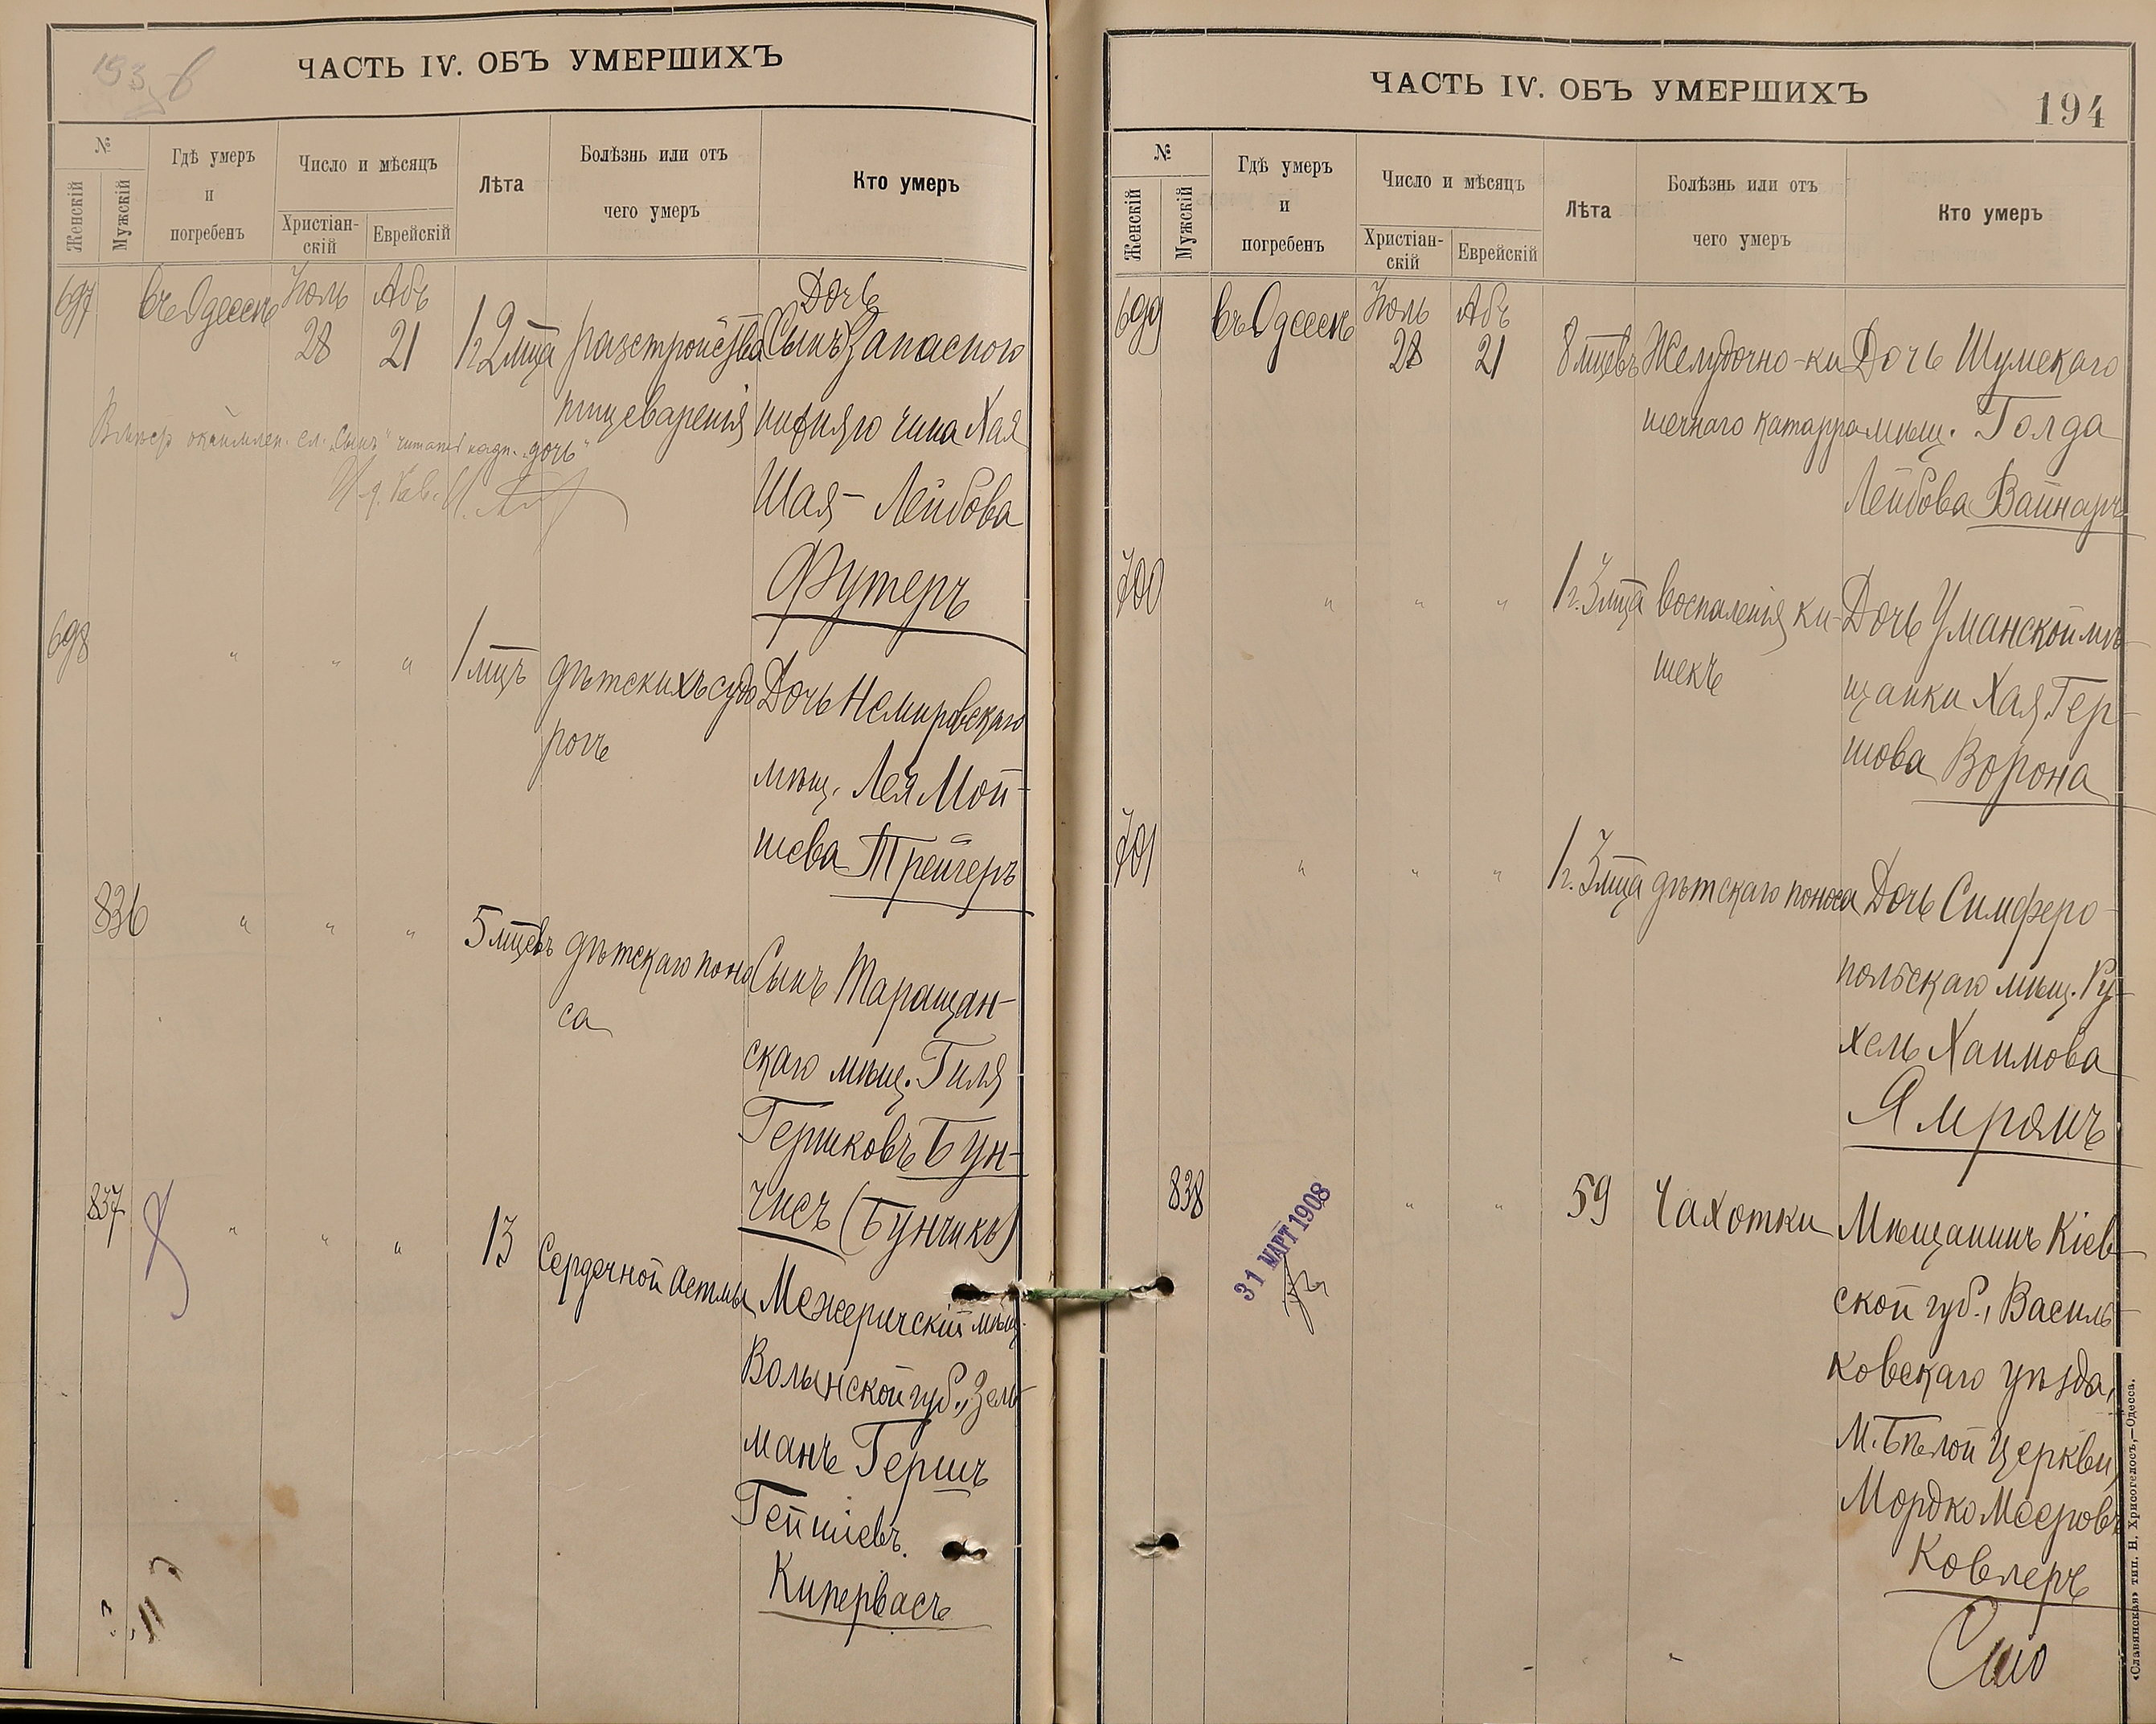 193 об
ЧАСТЬ IV. ОБЪ УМЕРШИХЪ
№
Женскій
Мужскій
Гдѣ умеръ
и
погребенъ
Число и мѣсяцъ
Христіан-
скій
Еврейскій
Лѣта
Болѣзнь или отъ
чего умеръ
Кто умеръ
697
въ Одессѣ
Іюль
28
Абъ
21
1 г. 2 мца
разстройства
пищеваренія
Дочь
Сынъ Запасного
нижняго чина Хая
Шая-Лейбова
Футеръ
сл. „Сынъ" читать надп. „дочь"
698
" " "
1 мцъ
дѣтскихъ судо
рогъ
Дочь Немировскаго
мѣщ. Лея Мой-
шева Трейгеръ
836
" " "
5 мцевъ
дѣтскаго поно
са
Сынъ Таращан-
скаго мѣщ. Гиля
Гершковъ Бун-
чисъ (Бунчикъ)
837
" " "
13
Сердечной астмы
Межеричскій мѣщ.
Волынской губ., Зель-
манъ Гершъ
Гейшіевъ.
Кипервасъ
ЧАСТЬ IV. ОБЪ УМЕРШИХЪ
194
№
Женскій
Мужскій
Гдѣ умеръ
и
погребенъ
Число и мѣсяцъ
Христіан-
скій
Еврейскій
Лѣта
Болѣзнь или отъ
чего умеръ
Кто умеръ
699
въ Одессѣ
Іюль
28
Абъ
21
8 мцевъ
Желудочно-ки
шечнаго катарра
Дочь Шумскаго
мѣщ. Голда
Лейбова Вайнаръ
700
" " "
1 г. 3 мца
воспаленія ки-
шекъ
Дочь Уманской мѣ-
щанки Хая Гер-
шова Ворона
701
" " "
1 г. 3 мца
дѣтскаго поноса
Дочь Симферо-
польскаго мѣщ. Ру-
хель Хаимова
Ямромъ
838
31 МАРТ 1908
" "
59
Чахотки
Мѣщанинъ Кіев-
ской губ., Василь-
ковскаго уѣзда,
м. Бѣлой Церкви,
Мордко Мееровъ
Ковлеръ
«Славянская» тип. Н. Хрисогелосъ,—Одесса.